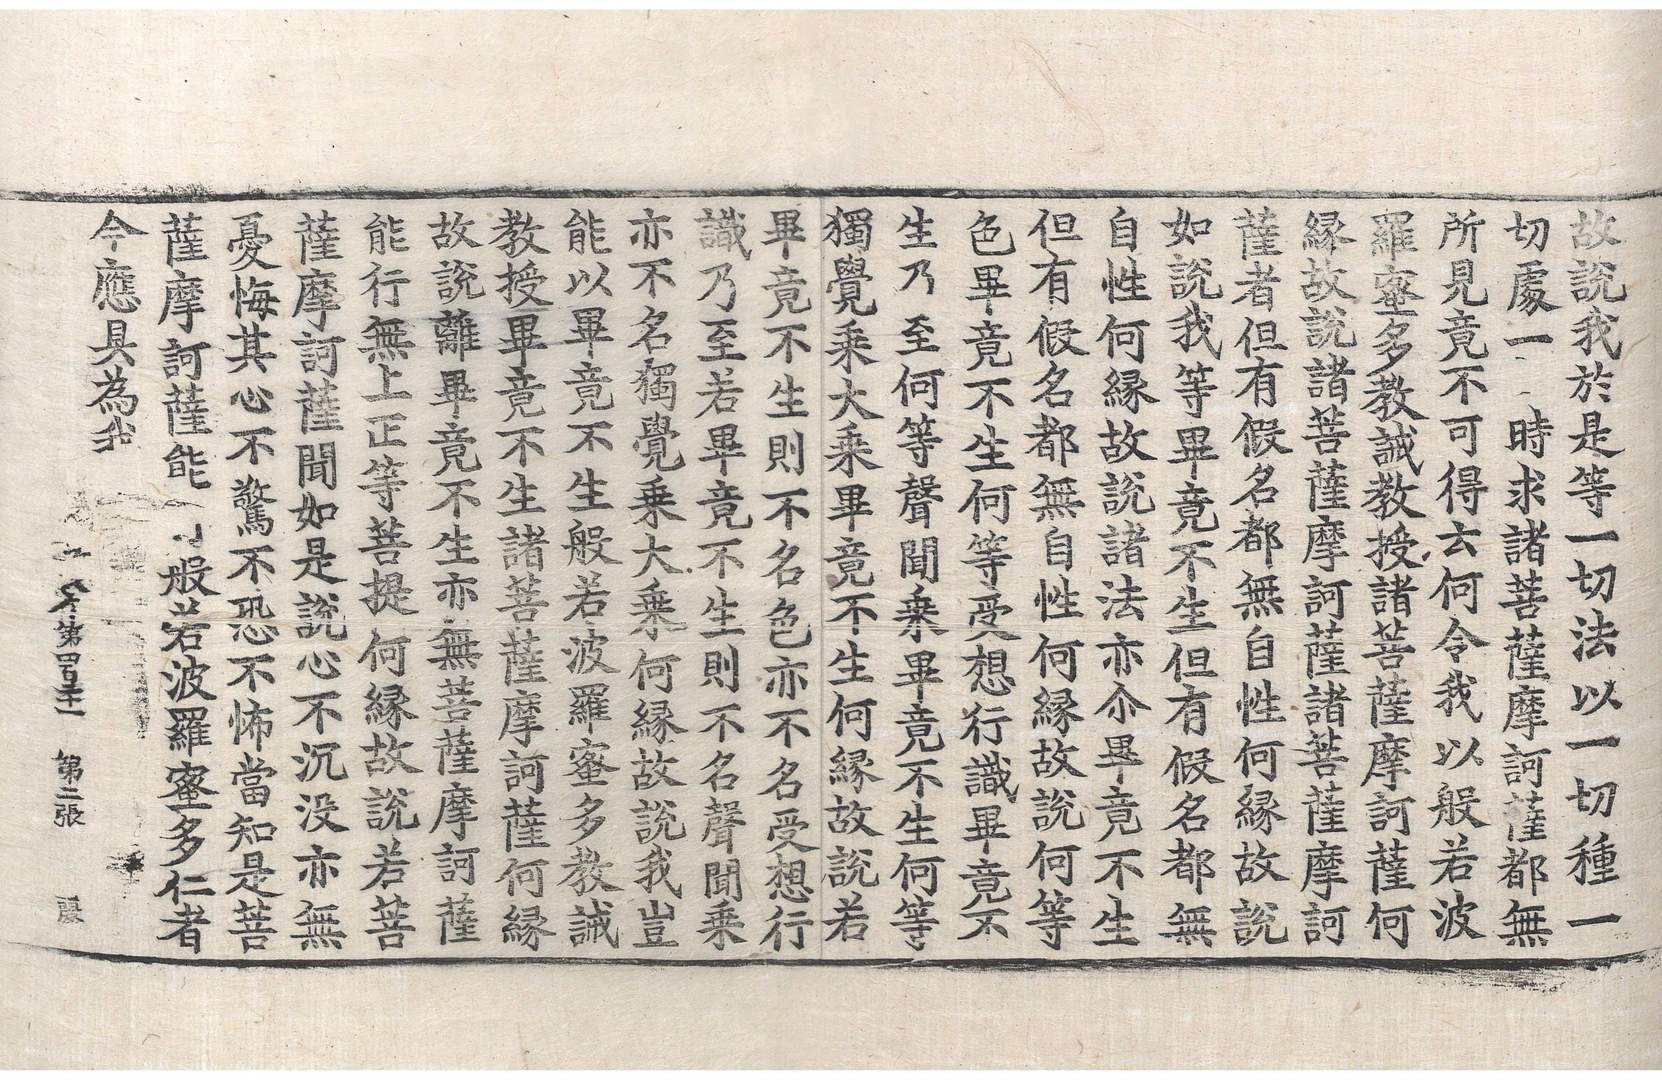 故說我於是等一切法以一切種一
切處一時求諸菩薩摩訶薩都無
所見竟不可得云何令我以般若波
羅蜜多教誡教授諸菩薩摩訶薩何
緣故說諸菩薩摩訶薩諸菩薩摩訶
薩者但有假名都無自性何緣故說
如說我等畢竟不生但有假名都無
自性何緣故說諸法亦尒畢竟不生
但有假名都無自性何緣故說何等
色畢竟不生何等受想行識畢竟不
生乃至何等聲聞乘畢竟不生何等
獨覺乘大乘畢竟不生何緣故說若
畢竟不生則不名色亦不名受想行
識乃至若畢竟不生則不名聲聞乘
亦不名獨覺乘大乘何緣故說我豈
能以畢竟不生般若波羅蜜多教誡
教授畢竟不生諸菩薩摩訶薩何緣
故說離畢竟不生亦無菩薩摩訶薩
能行無上正等菩提何緣故說若菩
薩摩訶薩聞如是說心不沉没亦無
憂悔其心不驚不恐不怖當知是菩
薩摩訶薩能般若波羅蜜多仁者
今應具為我
第二張